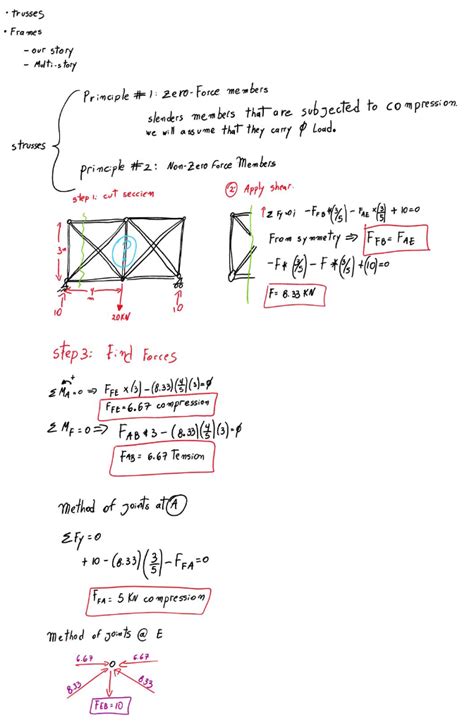 • trusses
• Frames
- our story
- Multi-story
Principle #1: Zero-Force members
slenders members that are subjected to compression.
we will assume that they carry ϕ Load.
strusses
principle #2: Non-Zero Force Members
step 1: cut seccion
② Apply shear.
3m
4
m
10
20KN
10
↑Σ Fy=0; -F_FB*(3/5) - F_AE*(3/5) + 10=0
From symmetry ⇒ F_FB = F_AE
-F*(3/5) - F*(3/5) + (10)=0
F= 8.33 KN
step 3: Find Forces
+
Σ M_A=0 ⇒ F_FE x(3) - (8.33)(4/5)(3)=ϕ
F_FE=6.67 compression
Σ M_F=0 ⇒ F_AB*3 - (8.33)(4/5)(3)=ϕ
F_AB= 6.67 Tension
Method of joints at A
ΣFy=0
+10 - (8.33)(3/5) - F_FA=0
F_FA= 5 KN compression
Method of joints @ E
6.67 6.67
8.33 8.33
F_EB=10